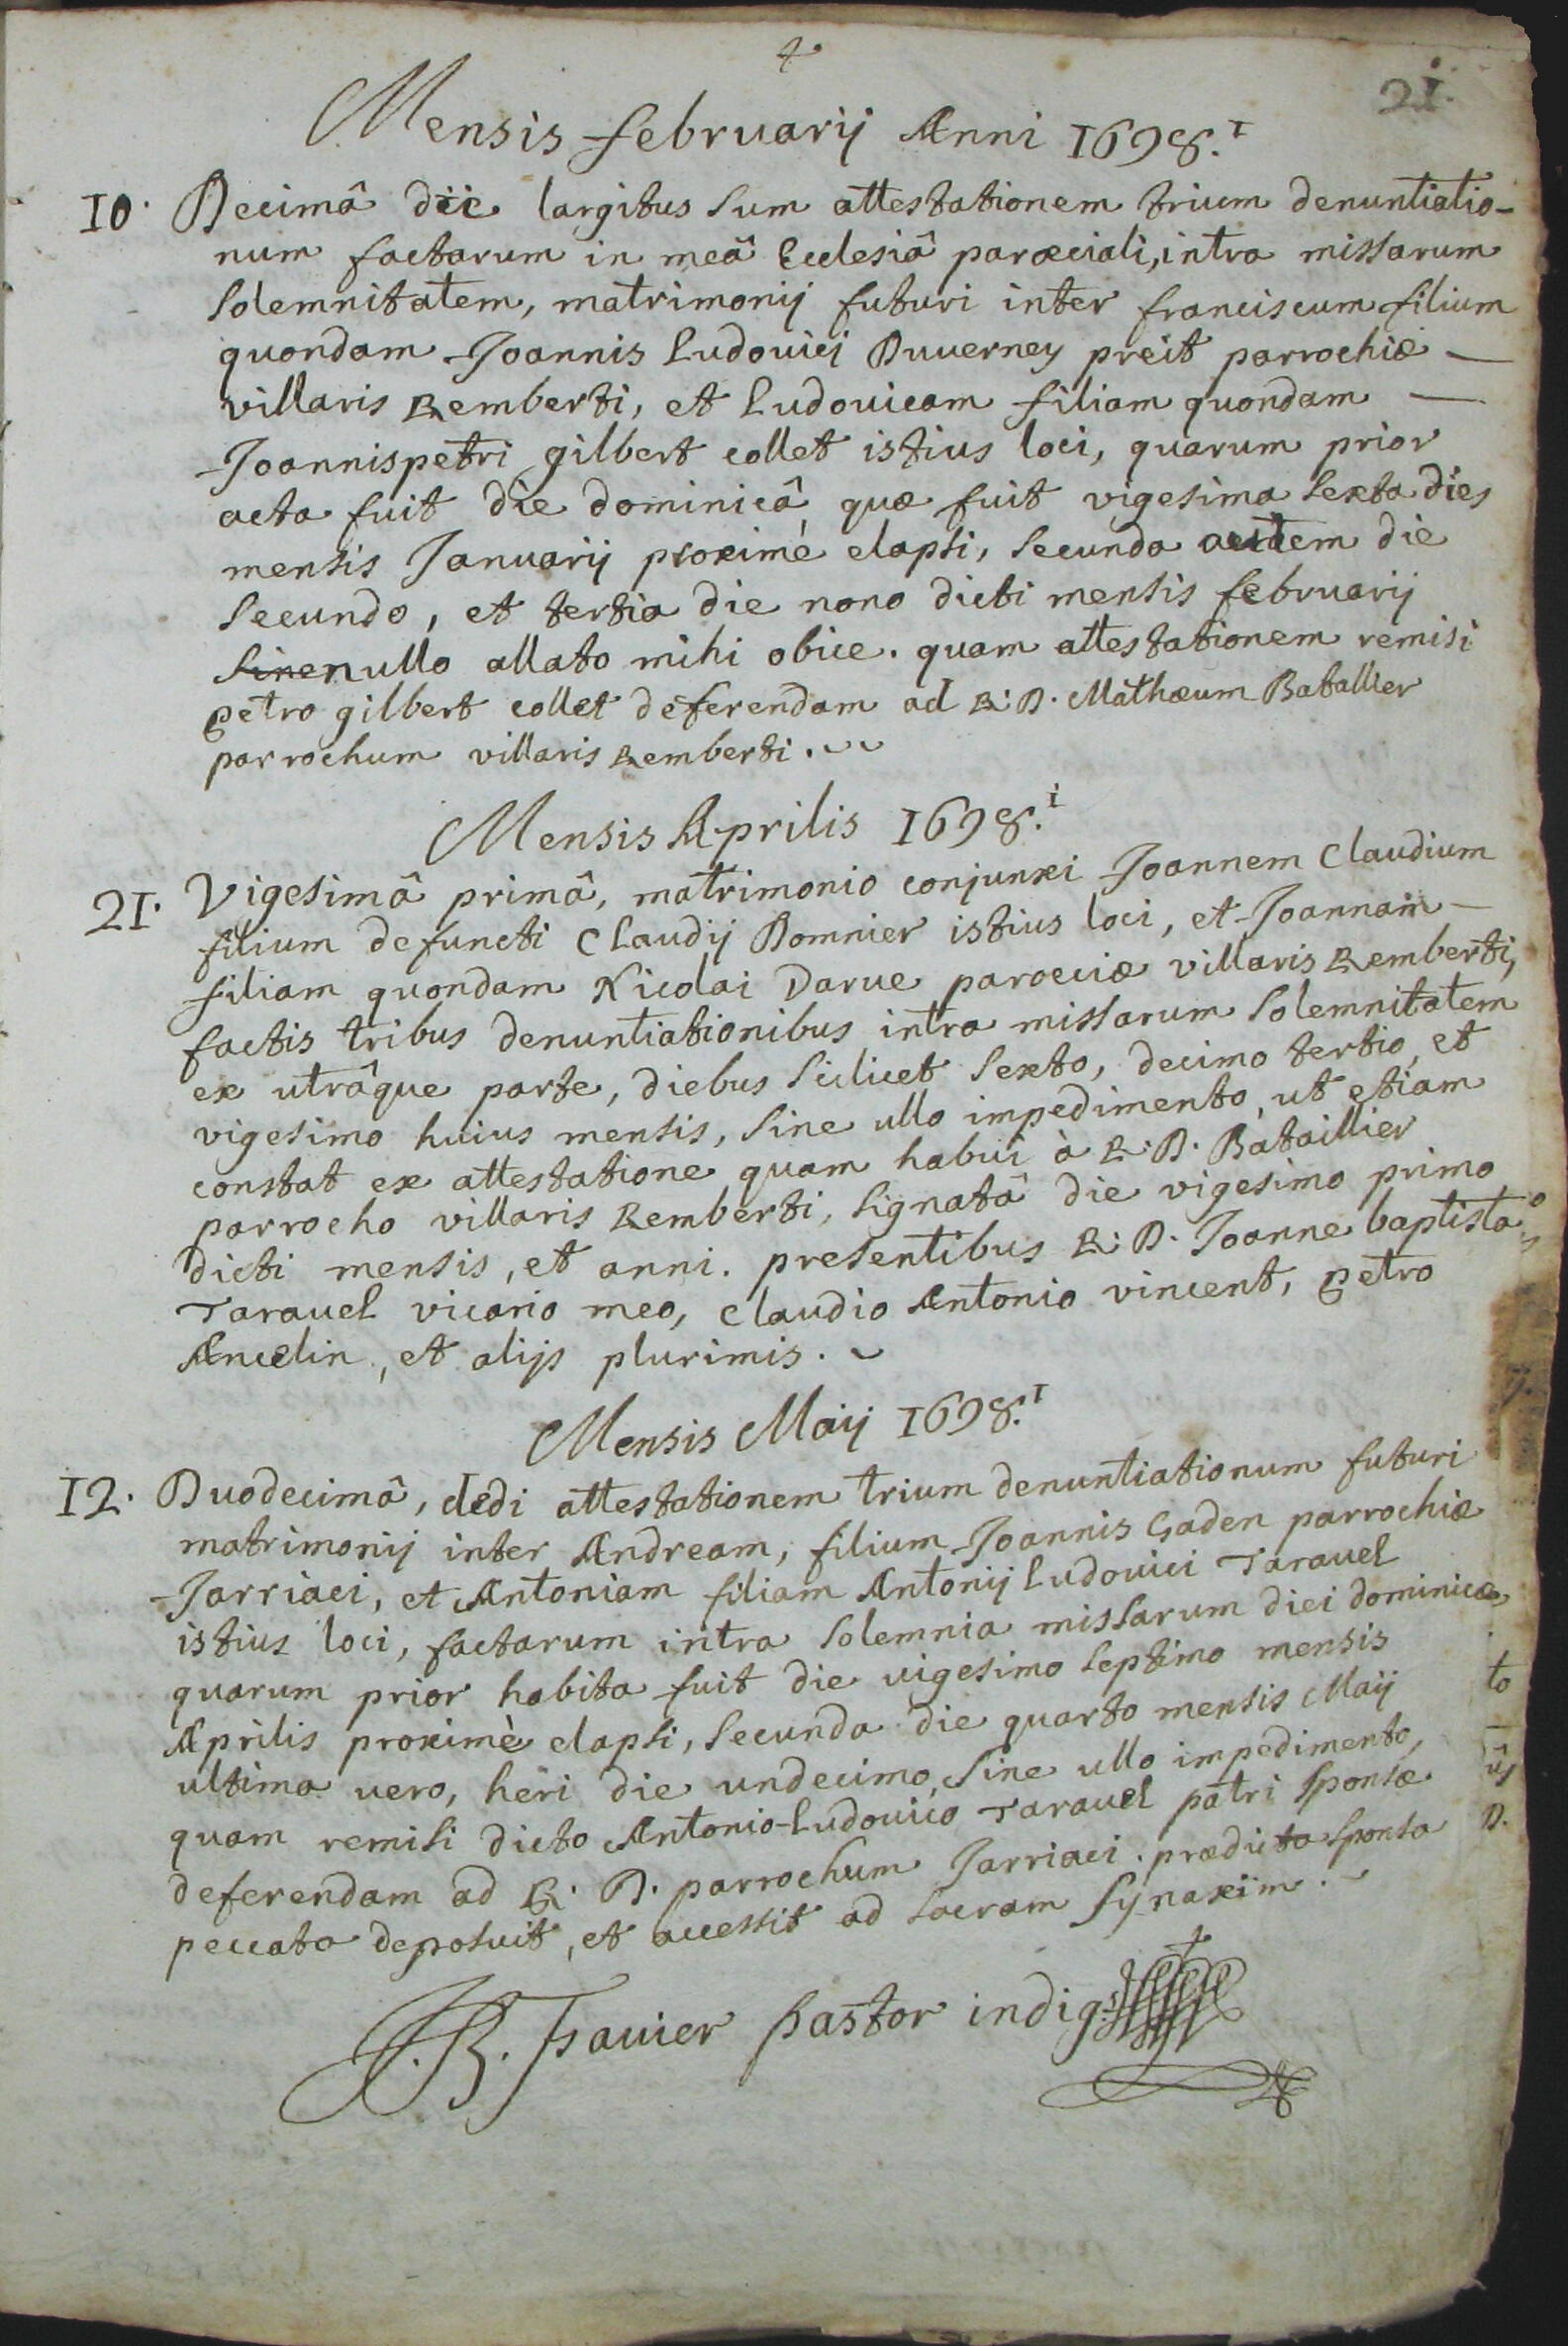 21.
Mensis februarij Anni 1698.i
10. Decimâ die largitus sum attestationem trium denuntiatio-
num factarum in meâ Ecclesiâ paroeciali, intra missarum
solemnitatem, matrimonij futuri inter franciscum filium
quondam Joannis Ludovici Duverney preit parrochiæ —
villaris Remberti, et Ludovicam filiam quondam —
Joannispetri gilbert collet istius loci, quarum prior
acta fuit die dominicâ quæ fuit vigesima sexta dies
mensis Januarij proximè elapsi, secunda autem die
secundo, et tertia die nono dicti mensis februarij
sine nullo allato mihi obice. quam attestationem remisi
petro gilbert collet deferendam ad R. D. Mathæum Bataillier
parrochum villaris Remberti.
Mensis Aprilis 1698.i
21. Vigesimâ primâ, matrimonio conjunxi Joannem Claudium
filium defuncti Claudij Domnier istius loci, et Joannam —
filiam quondam Nicolai Darve paroeciæ villaris Remberti,
factis tribus denuntiationibus intra missarum solemnitatem
ex utrâque parte, diebus scilicet sexto, decimo tertio, et
vigesimo huius mensis, sine ullo impedimento, ut etiam
constat ex attestatione quam habui à R. D. Bataillier
parrocho villaris Remberti, signatâ die vigesimo primo
dicti mensis, et anni. presentibus R. D. Joanne baptista
Taravel vicario meo, Claudio Antonio vincent, petro
Ancelin, et alijs plurimis.
Mensis Maij 1698.i
12. Duodecimâ, dedi attestationem trium denuntiationum futuri
matrimonij inter Andream, filium Joannis Gaden parrochiæ
Jarriaci, et Antoniam filiam Antonij Ludovici Taravel
istius loci, factarum intra solemnia missarum diei dominicæ,
quarum prior habita fuit die vigesimo septimo mensis
Aprilis proximè elapsi, secunda die quarto mensis Maij
ultima vero, heri die undecimo, sine ullo impedimento,
quam remisi dicto Antonio-Ludovico Taravel patri sponsæ
deferendam ad R. D. parrochum Jarriaci. prædicta sponsa
peccata deposuit, et accessit ad sacram synaxim.
J. B. Favier pastor indig.